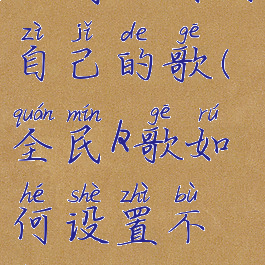 zì jǐ de gē
自己的歌(
quán mín gē rú
全民K歌如
hé shè zhì bù
何设置不